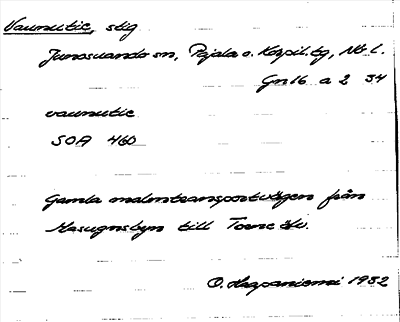 Vaunutie, stig
Junosuando sn, Pajala o. Korpil. tg, Nb l.
Gnl6 a 2 34
vaunutie
SOA 460
Gamla malmtransportvägen från
Masugnsbyn till Torne älv.
O. Haapaniemi 1982